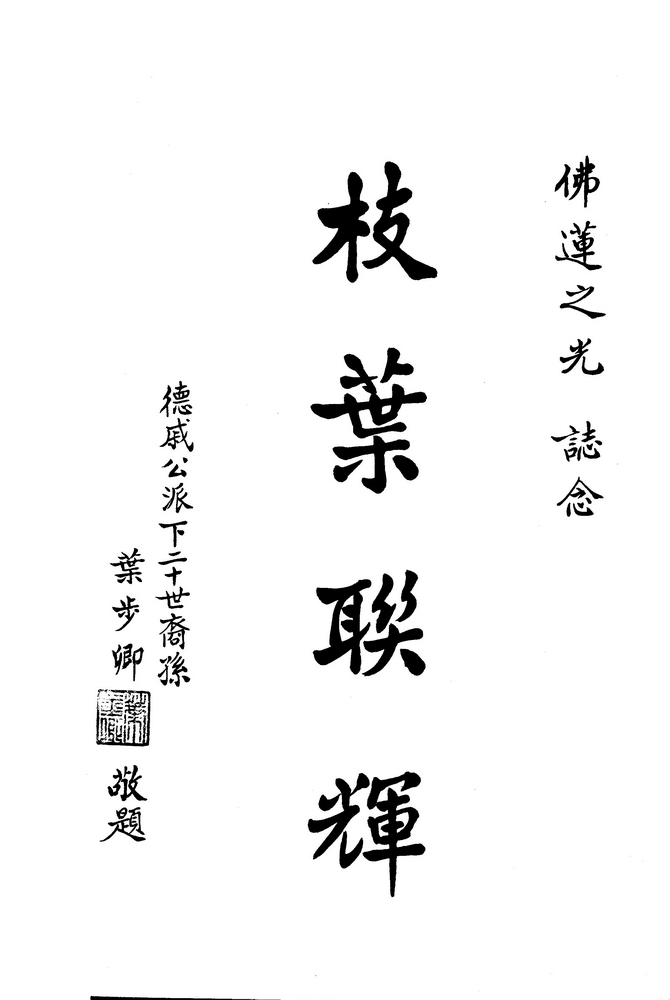 佛蓮之光 誌念
枝葉聯輝
德戚公派下二十世裔孫
葉步卿 敬題